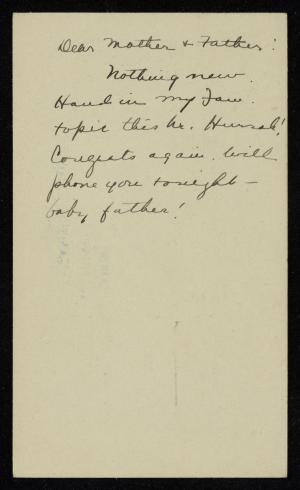 Dear Mother & Father:
Nothing new.
Hand in my Jaw.
topic this hr. Hurrah!
Congrats again. Will
phone you tonight –
baby father!